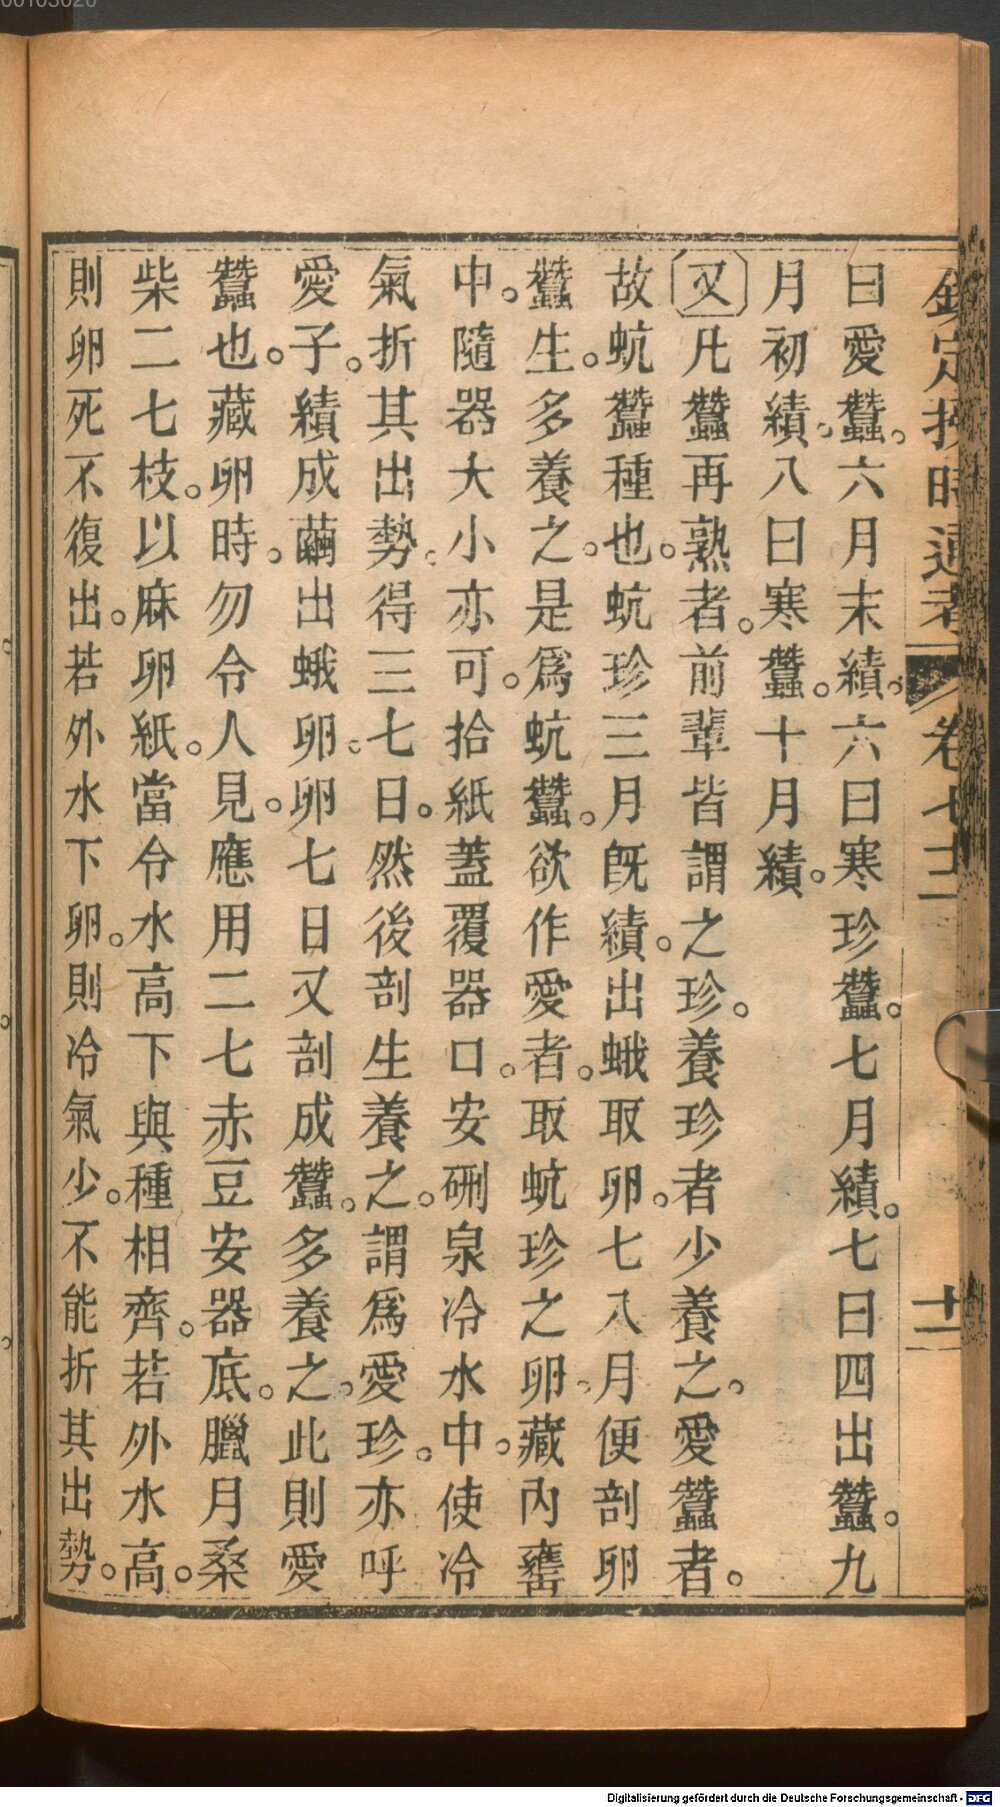 欽定授時通考 卷七十二 十一
曰愛蠶。六月末績。六曰寒珍蠶。七月績。七曰四出蠶。九
月初績。八曰寒蠶。十月績。
又凡蠶再熟者。前輩皆謂之珍。養珍者少養之。愛蠶者。
故蚖蠶種也。蚖珍三月旣績。出蛾取卵。七八月便剖卵
蠶生。多養之。是爲蚖蠶。欲作愛者。取蚖珍之卵。藏內罋
中。隨器大小亦可。拾紙蓋覆器口。安硎泉冷水中。使冷
氣折其出勢。得三七日。然後剖生養之。謂爲愛珍。亦呼
愛子。績成繭出蛾卵。卵七日又剖成蠶。多養之。此則愛
蠶也。藏卵時。勿令人見。應用二七赤豆安器底。臘月桑
柴二七枝。以麻卵紙。當令水高下與種相齊。若外水高。
則卵死不復出。若外水下卵。則冷氣少。不能折其出勢。
Digitalisierung gefördert durch die Deutsche Forschungsgemeinschaft - DFG